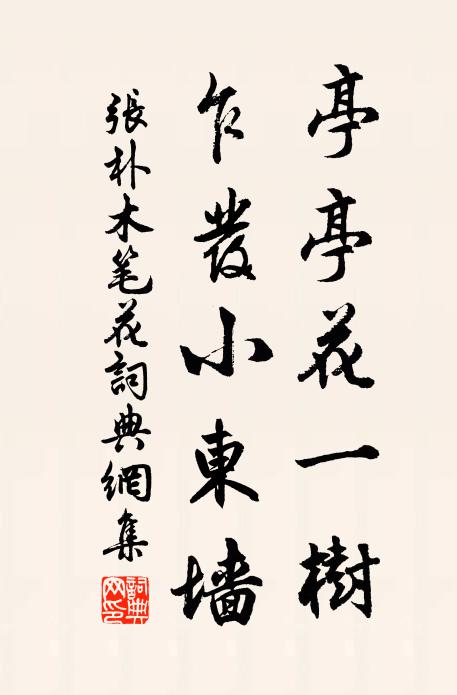 亭亭花一樹
乍發小東墻
張朴木笔花詞典網集
詞典網印